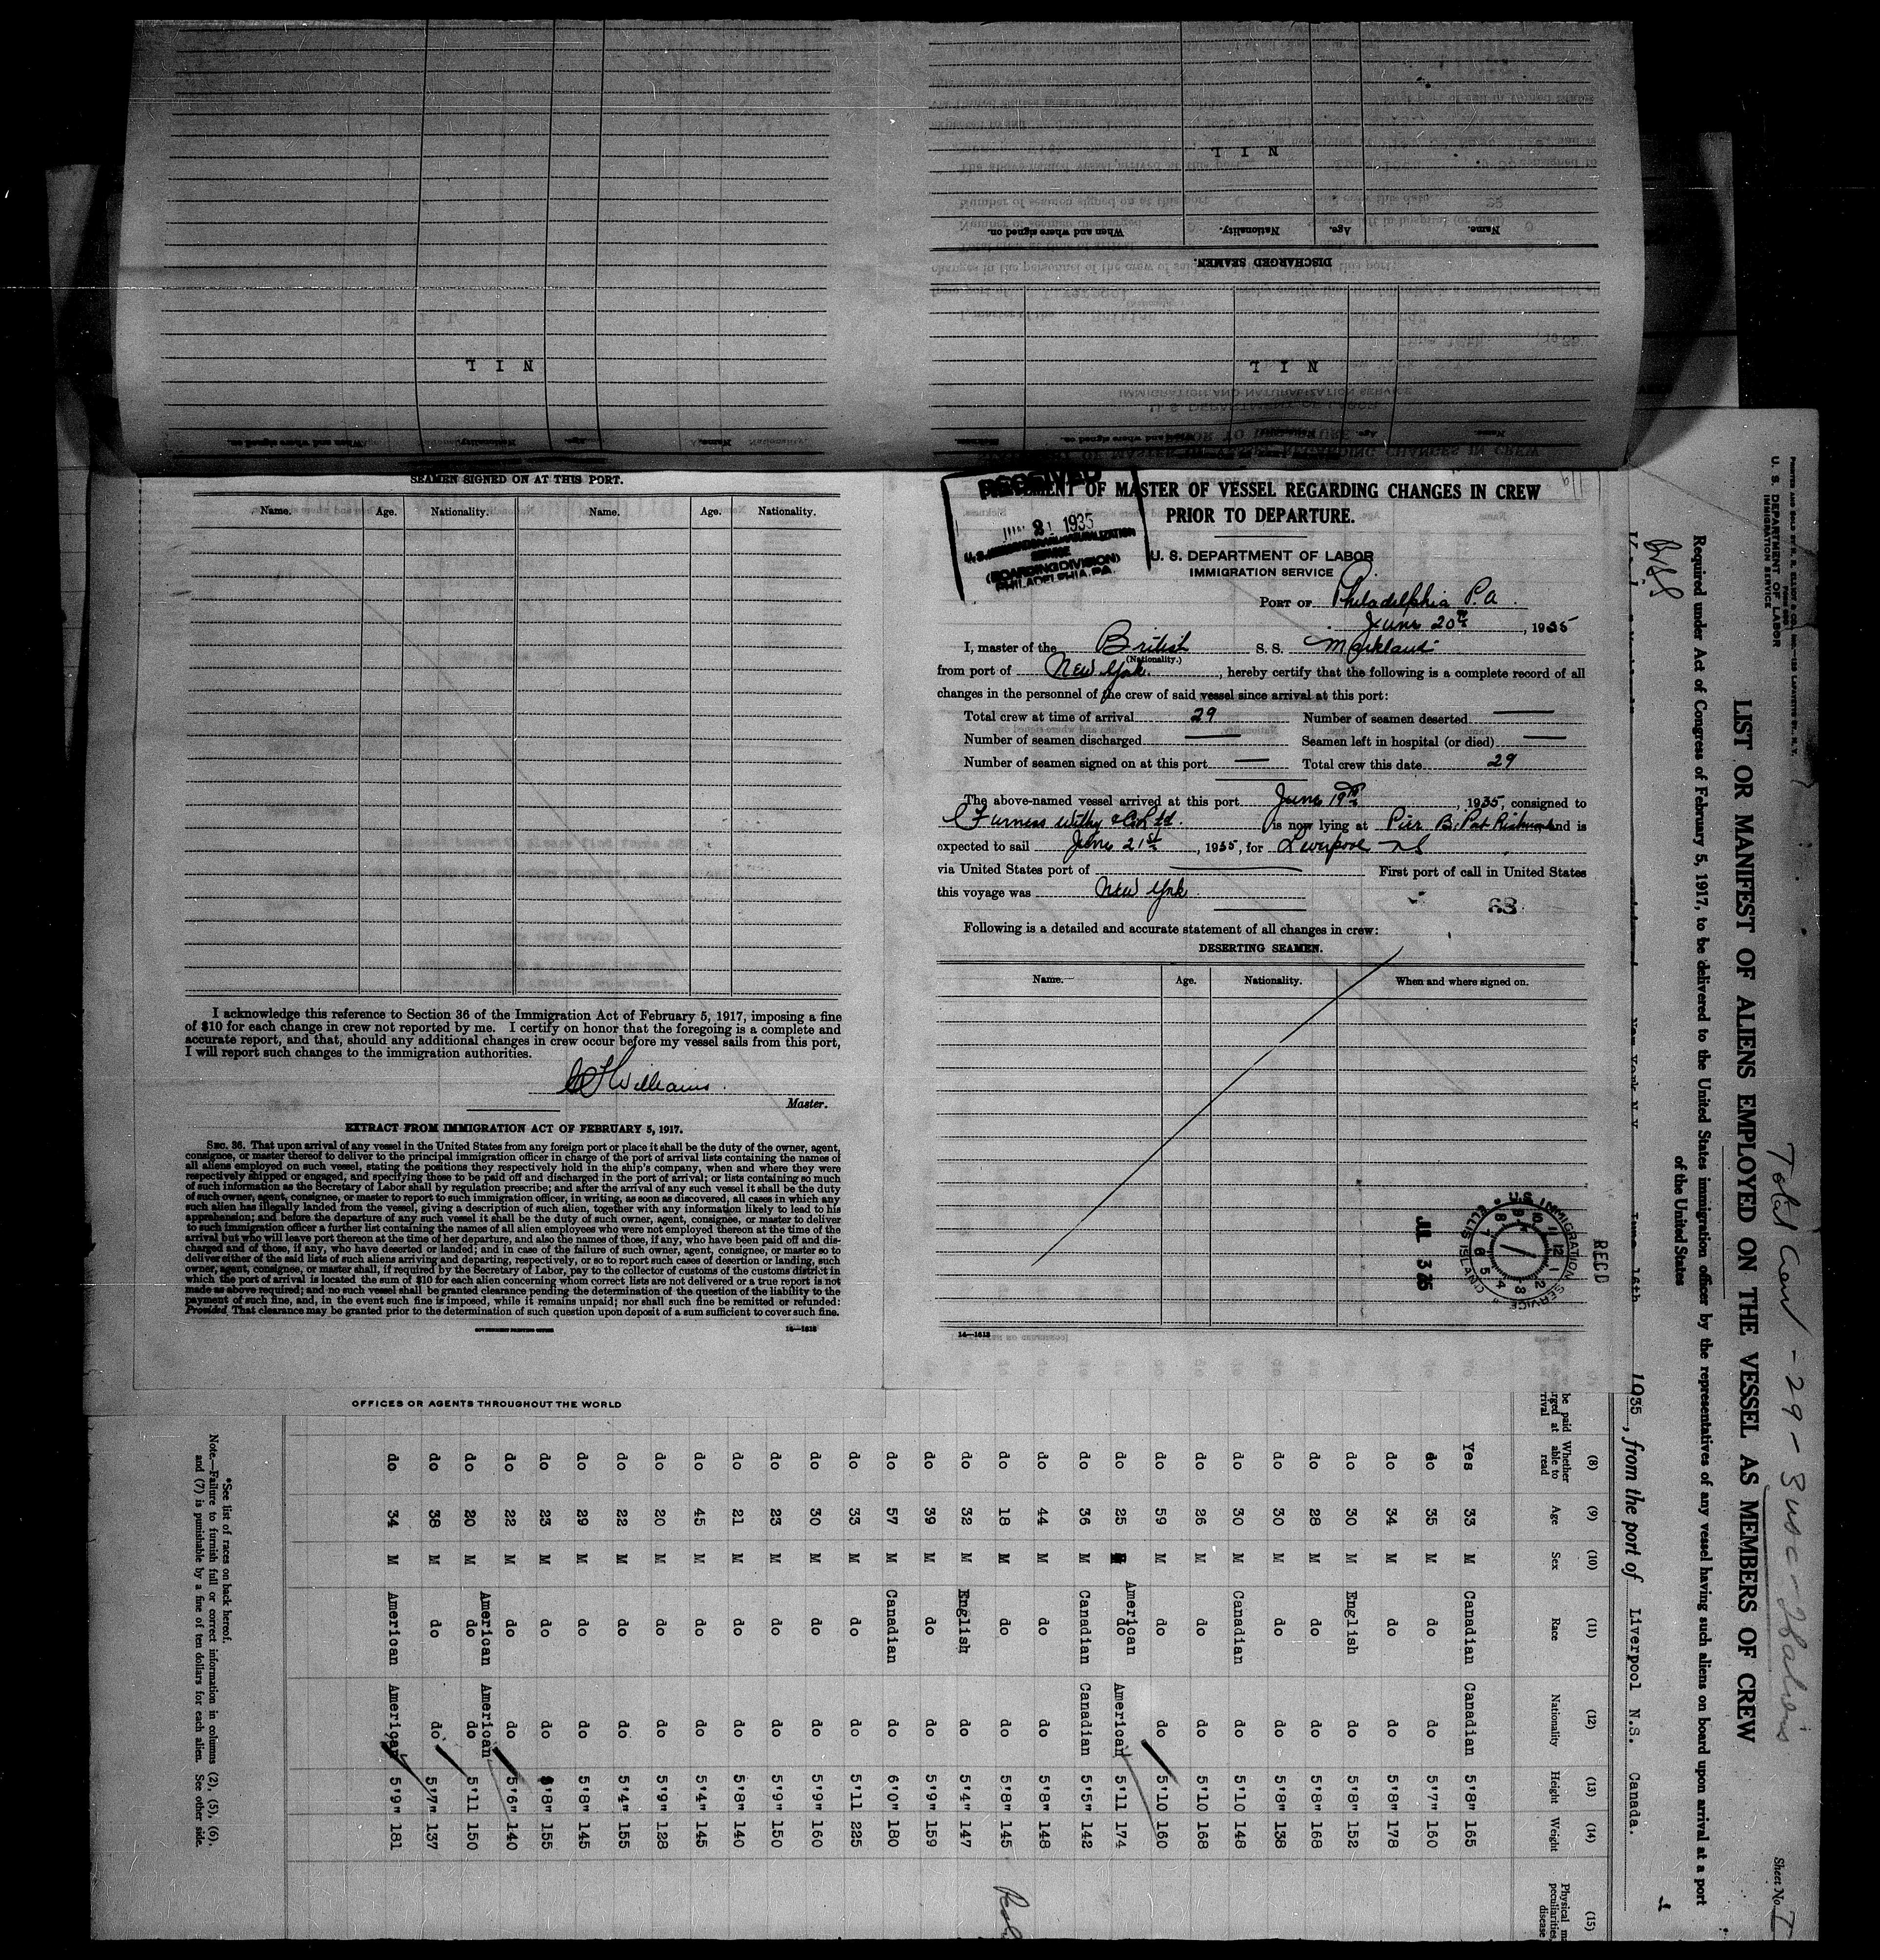 SEAMEN SIGNED ON AT THIS PORT.
Name. Age. Nationality. Name. Age. Nationality.
I acknowledge this reference to Section 36 of the Immigration Act of February 5, 1917, imposing a fine
of $10 for each change in crew not reported by me. I certify on honor that the foregoing is a complete and
accurate report, and that, should any additional changes in crew occur before my vessel sails from this port,
I will report such changes to the immigration authorities.
Williams.
Master.
EXTRACT FROM IMMIGRATION ACT OF FEBRUARY 5, 1917.
SEC. 36. That upon arrival of any vessel in the United States from any foreign port or place it shall be the duty of the owner, agent,
consignee, or master thereof to deliver to the principal immigration officer in charge of the port of arrival lists containing the names of
all aliens employed on such vessel, stating the positions they respectively hold in the ship's company, when and where they were
respectively shipped or engaged, and specifying those to be paid off and discharged in the port of arrival; or lists containing so much
of such information as the Secretary of Labor shall by regulation prescribe; and after the arrival of any such vessel it shall be the duty
of such owner, agent, consignee, or master to report to such immigration officer, in writing, as soon as discovered, all cases in which any
such alien has illegally landed from the vessel, giving a description of such alien, together with any information likely to lead to his
apprehension; and before the departure of any such vessel it shall be the duty of such owner, agent, consignee, or master to deliver
to such immigration officer a further list containing the names of all alien employees who were not employed thereon at the time of the
arrival but who will leave port thereon at the time of her departure, and also the names of those, if any, who have been paid off and dis-
charged and of those, if any, who have deserted or landed; and in case of the failure of such owner, agent, consignee, or master so to
deliver either of the said lists of such aliens arriving and departing, respectively, or so to report such cases of desertion or landing, such
owner, agent, consignee, or master shall, if required by the Secretary of Labor, pay to the collector of customs of the customs district in
which the port of arrival is located the sum of $10 for each alien concerning whom correct lists are not delivered or a true report is not
made as above required; and no such vessel shall be granted clearance pending the determination of the question of the liability to the
payment of such fine, and, in the event such fine is imposed, while it remains unpaid; nor shall such fine be remitted or refunded:
Provided, That clearance may be granted prior to the determination of such question upon deposit of a sum sufficient to cover such fine.
GOVERNMENT PRINTING OFFICE 14—1613
OFFICES OR AGENTS THROUGHOUT THE WORLD
RECEIVED
1935
(BOARDING DIVISION)
PHILADELPHIA, PA.
OF MASTER OF VESSEL REGARDING CHANGES IN CREW
PRIOR TO DEPARTURE.
U. S. DEPARTMENT OF LABOR
IMMIGRATION SERVICE
PORT OF Philadelphia P.a.
June 20th, 1935
I, master of the British S. S. Markland
(Nationality.)
from port of New York., hereby certify that the following is a complete record of all
changes in the personnel of the crew of said vessel since arrival at this port:
Total crew at time of arrival 29 Number of seamen deserted —
Number of seamen discharged — Seamen left in hospital (or died) —
Number of seamen signed on at this port — Total crew this date 29
The above-named vessel arrived at this port June 19th, 1935, consigned to
Furness Withy & Co Ltd. is now lying at Pier B. Port Richmond and is
expected to sail June 21st, 1935, for Liverpool NS
via United States port of — First port of call in United States
this voyage was New York
68
Following is a detailed and accurate statement of all changes in crew:
DESERTING SEAMEN.
Name. Age. Nationality. When and where signed on.
14—1613
RECD
U.S. IMMIGRATION SERVICE ELLIS ISLAND
JUL 3 35
DISCHARGED SEAMEN.
Name. Age. Nationality. When and where signed on.
NIL
NIL
NIL
Sheet No. I
U. S. DEPARTMENT OF LABOR
IMMIGRATION SERVICE
Total Crew - 29 - 3 USC - 26 aliens
LIST OR MANIFEST OF ALIENS EMPLOYED ON THE VESSEL AS MEMBERS OF CREW
Required under Act of Congress of February 5, 1917, to be delivered to the United States immigration officer by the representatives of any vessel having such aliens on board upon arrival at a port
of the United States
New York N.Y. June 16th 1935, from the port of Liverpool N.S. Canada.
(8) (9) (10) (11) (12) (13) (14) (15)
Whether able to read Age Sex Race Nationality Height Weight
Yes 33 M Canadian Canadian 5'8" 165
do 35 M do do 5'7" 160
do 34 M do do 5'8" 178
do 30 M English do 5'8" 152
do 28 M do do 5'8" 168
do 30 M do do 5'8" 138
do 30 M Canadian do 5'10 148
do 26 M do do 5'10 168
do 59 M do do 5'10 160
do 25 M American American 5'11 174
do 36 M Canadian Canadian 5'5" 142
do 44 M do do 5'8" 148
do 18 M do do 5'8" 145
do 32 M English do 5'4" 147
do 39 M do do 5'9" 159
do 57 M Canadian do 6'0" 180
do 33 M do do 5'11 225
do 30 M do do 5'9" 160
do 23 M do do 5'9" 150
do 21 M do do 5'8" 140
do 45 M do do 5'4" 145
do 20 M do do 5'9" 128
do 22 M do do 5'4" 155
do 29 M do do 5'8" 145
do 23 M do do 5'8" 155
do 22 M do do 5'6" 140
American American
do 20 M do do 5'11 150
do 38 M do do 5'7" 137
do 34 M American American 5'9" 181
*See list of races on back hereof.
Note.—Failure to furnish full or correct information in columns (2), (5), (6),
and (7) is punishable by a fine of ten dollars for each alien. See other side.